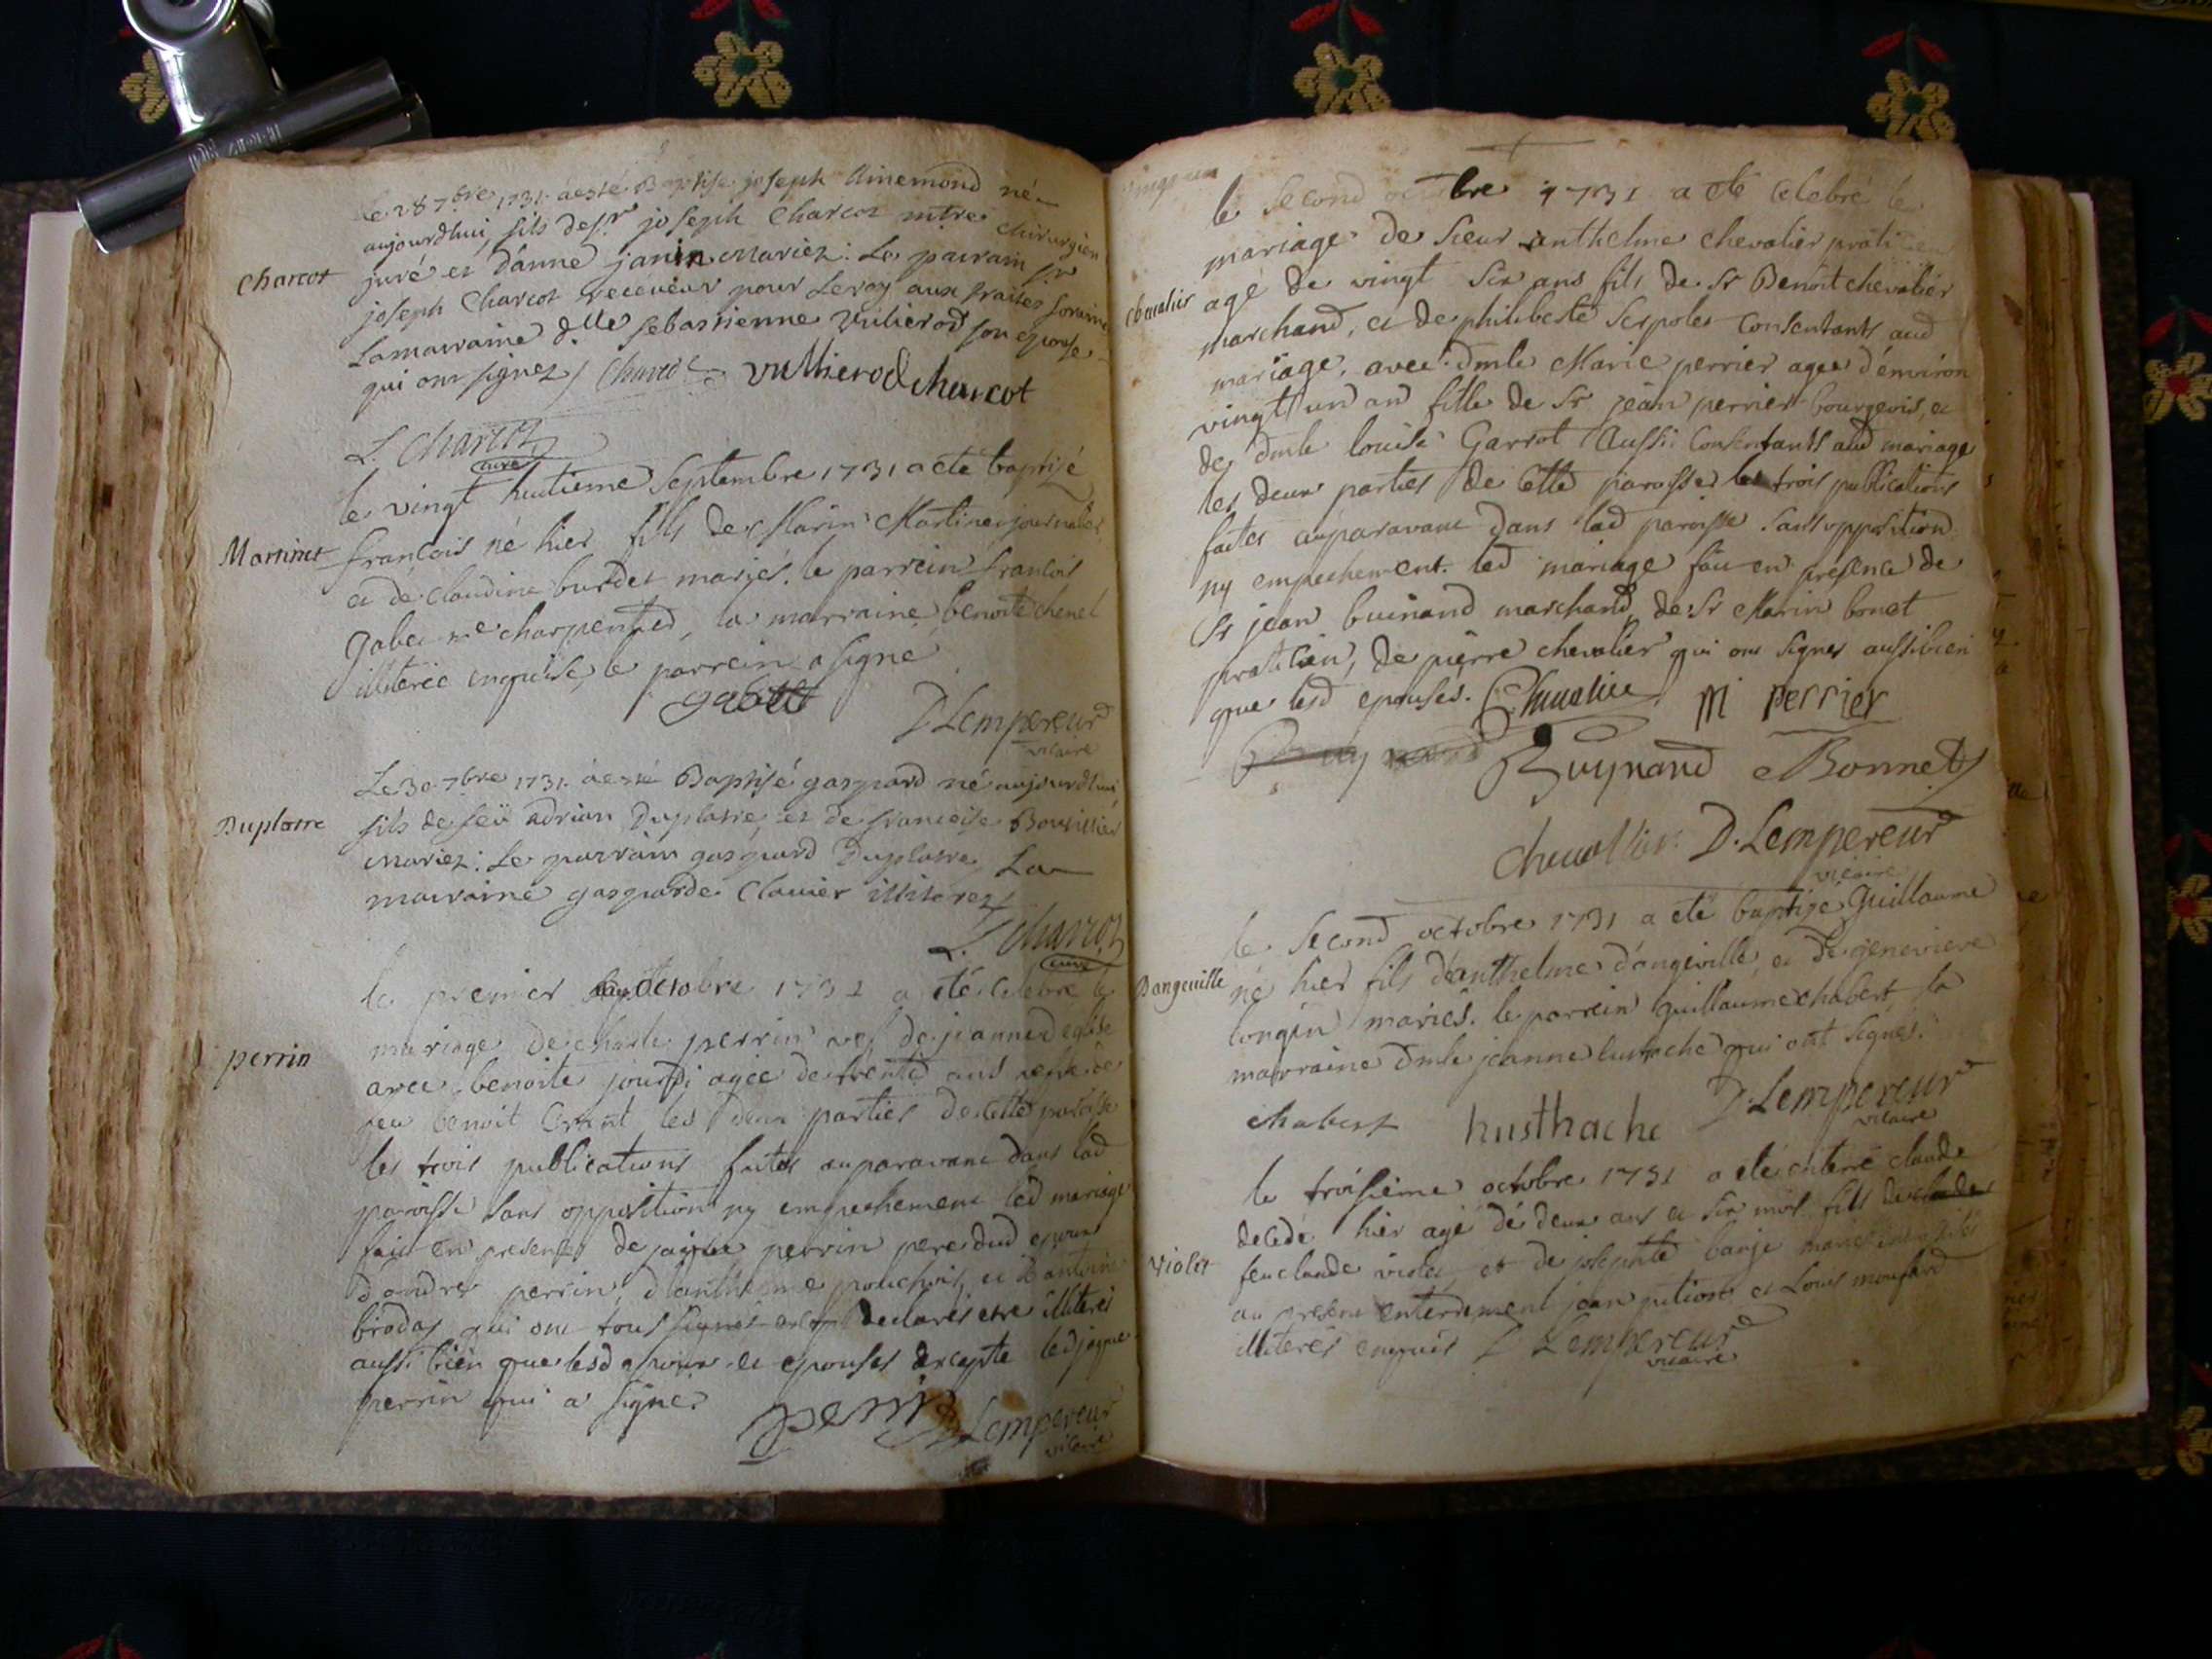 le 28 7bre 1731. a esté Baptisé joseph Ainemond né
aujourdhui, fils de sr joseph Charcot mtre chirurgien
Charcot
juré et d'anne janin mariez: Le parrain sr
joseph Charcot receveur pour Le roy aux traites foraine
La marraine dlle sebastienne Vullierod son epouse
qui ont signez / Charcot Vullierod charcot
L. Charcot
curé
le vingt huitieme Septembre 1731 a eté baptisé
Martinet
françois né hier fils de Marin Martinet journalier
et de claudine burdet mariés. le parrein francois
gabet me charpentier, la marraine benoite chenel
illiterée enquise, le parrein a signé
gabett
D Lempereur
vicaire
Le 30 7bre 1731. a esté Baptisé gaspard né aujourdhui,
Duplatre
fils de feü adrian Duplatre, et de francoise Bouvillier
mariez: Le parrain gaspard Duplatre, La
marraine gasparde Clavier illiterez
L. Charcot
curé
le premier octobre 1731 a eté celebré le
mariage de charle perrin vef de jeanne d'eglise
perrin
avec benoite jourdi agée de trente ans veve de
feu benoit les deux parties de cette paroisse
les trois publications faites auparavant dans lad
paroisse sans opposition ny empechement led mariage
fait en presence de jayme perrin pere dud epoux
d'andre perrin, d'anthelme pouchoit, et d'antoine
brodas qui ont tous declarés etre illiterés
aussi bien que lesd epoux et epouses excepté led jayme
perrin qui a signé.
perrin D Lempereur
vicaire
le second octobre 1731 a eté celebré le
mariage de sieur anthelme chevalier praticien
Chevalier
agé de vingt six ans fils de Sr Benoit chevalier
marchand, et de philiberte Serpolet consentants aud
mariage, avec dmle Marie perrier agée d'environ
vingt un an fille de Sr jean perrier bourgeois, et
de dmle louise Garrot aussi consentants aud mariage
les deux parties de cette paroisse les trois publications
faites auparavant dans lad paroisse sans opposition
ny empechement. led mariage fait en présence de
Sr jean buinand marchand, de Sr Marin bonet
praticien, de pierre chevalier qui ont signés aussi bien
que lesd epousés. Chevalier M perrier
Buynand Bonnet
chevallier D. Lempereur
vicaire
le second octobre 1731 a eté baptisé guillaume
Dangeville
né hier fils d'anthelme d'angeville, et de genevieve
longin mariés. le parrein guillaume chabert, la
marraine dmle jeanne hustache qui ont signés.
chabert husthache D. Lempereur
vicaire
le troisieme octobre 1731 a eté enterré claude
decedé hier agé de deux ans et six mois fils de claude
Violet
feu claude violet, et de josephte barje mariés
au présent enterrement jean pition et Louis moufard
illiterés enquis D Lempereur
vicaire